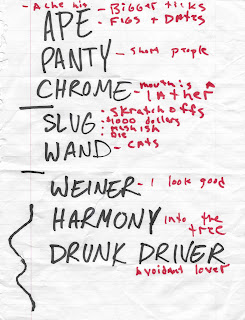 - Ache his - Bigger ticks
APE - Figs + Dates
PANTY - short people
CHROME - mouth is a lather
SLUG : Skratch offs
: 4000 dollars
: Mashish
: Die
WAND - cats
WEINER - I look good
HARMONY into the tree
DRUNK DRIVER
avoidant lover